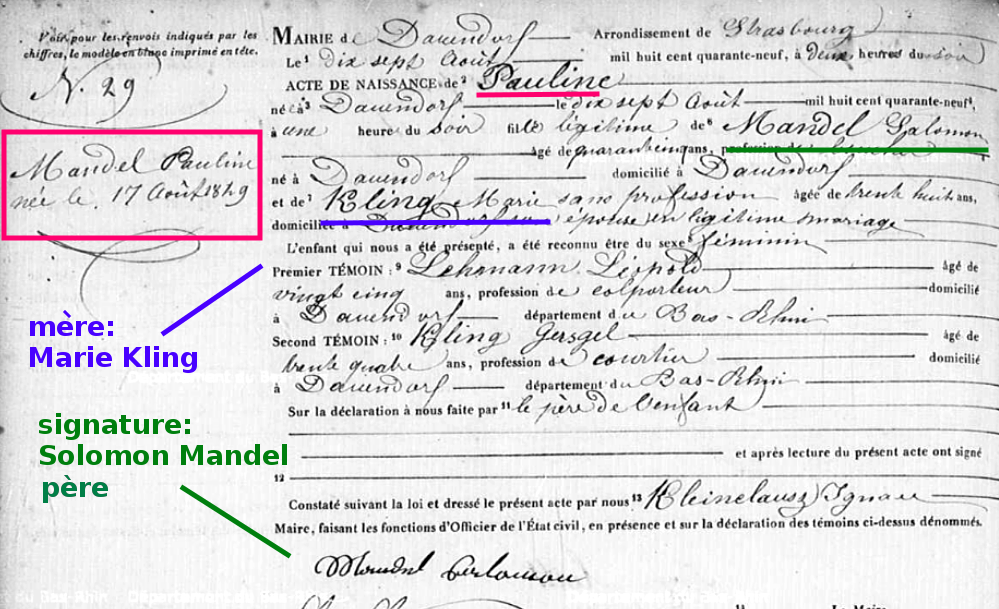 Voir pour les renvois indiqués par les
chiffres, le modèle en blanc imprimé en tête.
N. 29
Mandel Pauline
née le 17 Août 1849
mère:
Marie Kling
signature:
Solomon Mandel
père
MAIRIE de Dauendorf Arrondissement de Strasbourg
Le 1 dix sept Août mil huit cent quarante-neuf, à deux heures du soir
ACTE DE NAISSANCE de 2 Pauline
née à 3 Dauendorf le dix sept Août mil huit cent quarante-neuf,
à une heure du soir fille légitime de 6 Mandel Salomon
âgé de quarante cinq ans, profession de
né à Dauendorf domicilié à Dauendorf
et de 7 Kling Marie sans profession âgée de trente huit ans,
domiciliée à épouse en légitime mariage
L'enfant qui nous a été présenté, a été reconnu être du sexe 8 féminin
Premier TÉMOIN : 9 Lehmann Léopold âgé de
vingt cinq ans, profession de colporteur domicilié
à Dauendorf département du Bas-Rhin
Second TÉMOIN : 10 Kling Gersgel âgé de
trente quatre ans, profession de courtier domicilié
à Dauendorf département du Bas-Rhin
Sur la déclaration à nous faite par 11 le père de l'enfant
et après lecture du présent acte ont signé
12
Constaté suivant la loi et dressé le présent acte par nous 13 Kleinclausz Ignace
Maire, faisant les fonctions d'Officier de l'État civil, en présence et sur la déclaration des témoins ci-dessus dénommés.
Mandel Salomon
du Bas-Rhin Département du Bas-Rhin
Le Maire